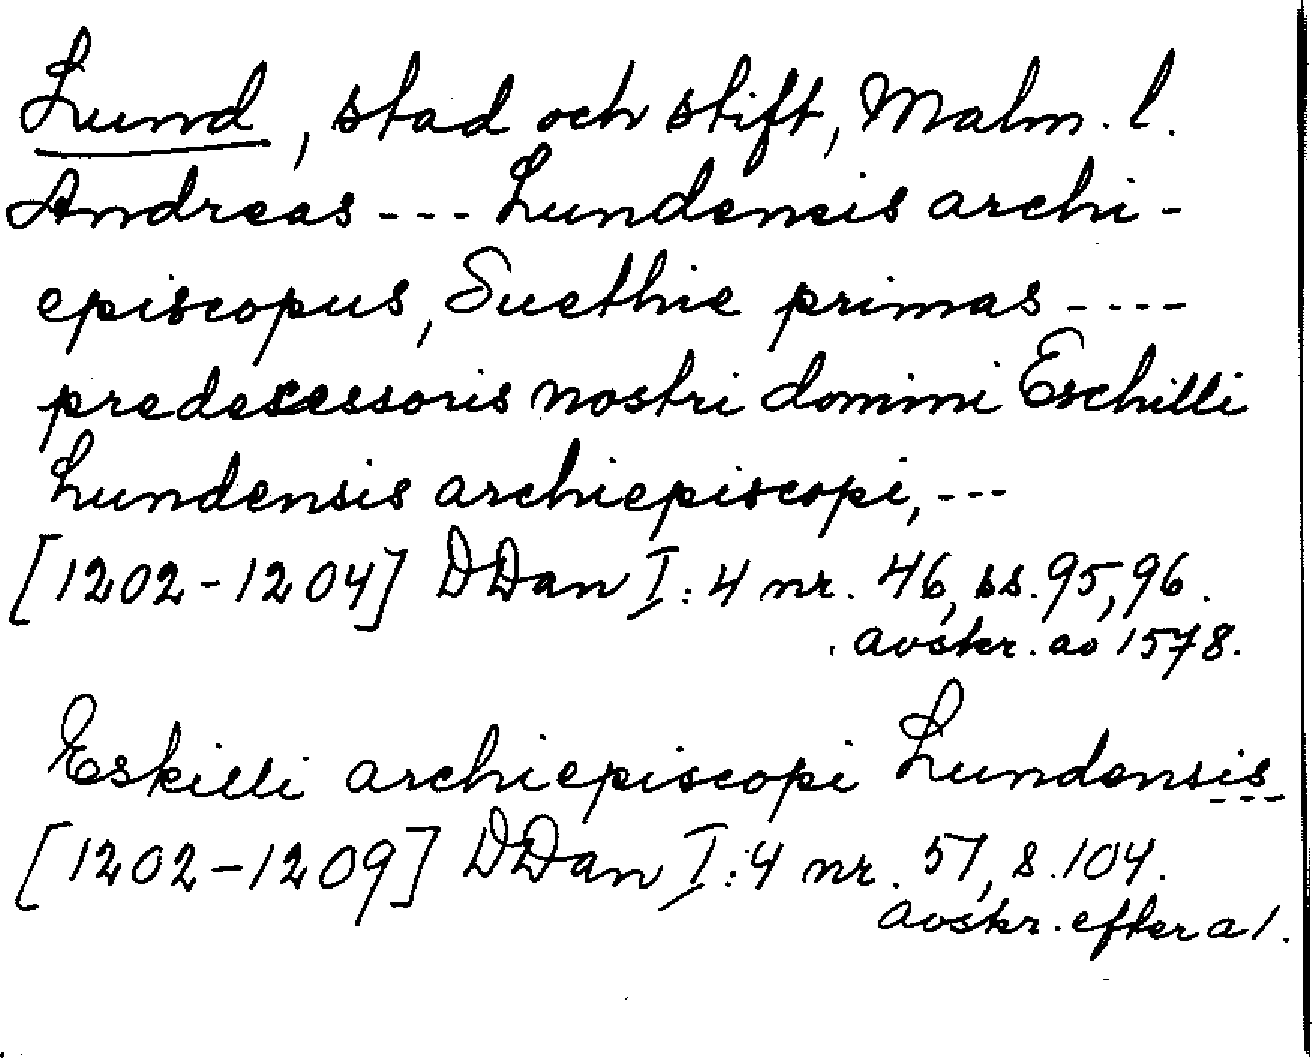 Lund, stad och stift, Malm. l.
Andreas --- Lundensis archi-
episcopus, Suethie primas ----
predecessoris nostri domini Eschilli
Lundensis archiepiscopi, ---
[1202-1204] DDan I:4 nr. 46, ss. 95, 96.
avskr. ao 1578.
Eskilli archiepiscopi Lundensis ---
[1202-1209] DDan I:4 nr. 51, s. 104.
avskr. efter a 1.